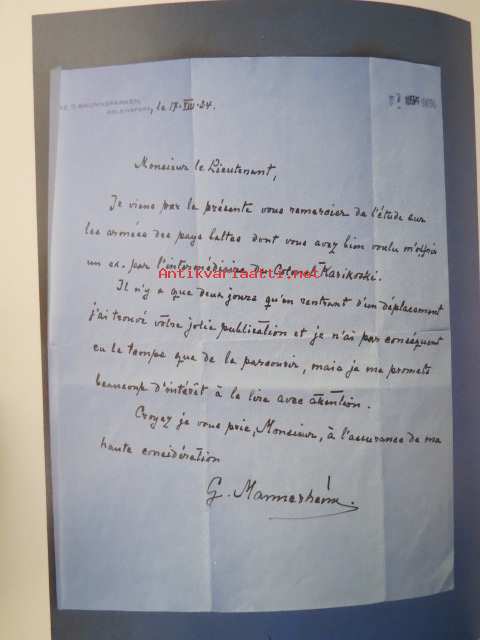 BRUNNSPARKEN
HELSINGFORS, le 17·VIII·34.
Monsieur le Lieutenant,
Je viens par la présente vous remercier de l'étude sur
les armées des pays baltes dont vous avez bien voulu m'offrir
un ex. par l'intermédiaire du Colonel Karikoski.
Antikvariaatti.net
Il n'y a que deux jours qu'en rentrant d'un déplacement
j'ai trouvé vôtre jolie publication et je n'ai par conséquent
eu le temps que de la parcourir, mais je me promets
beaucoup d'intérêt à la lire avec attention.
Croyez je vous prie, Monsieur, à l'assurance de ma
haute considération
G. Mannerheim.